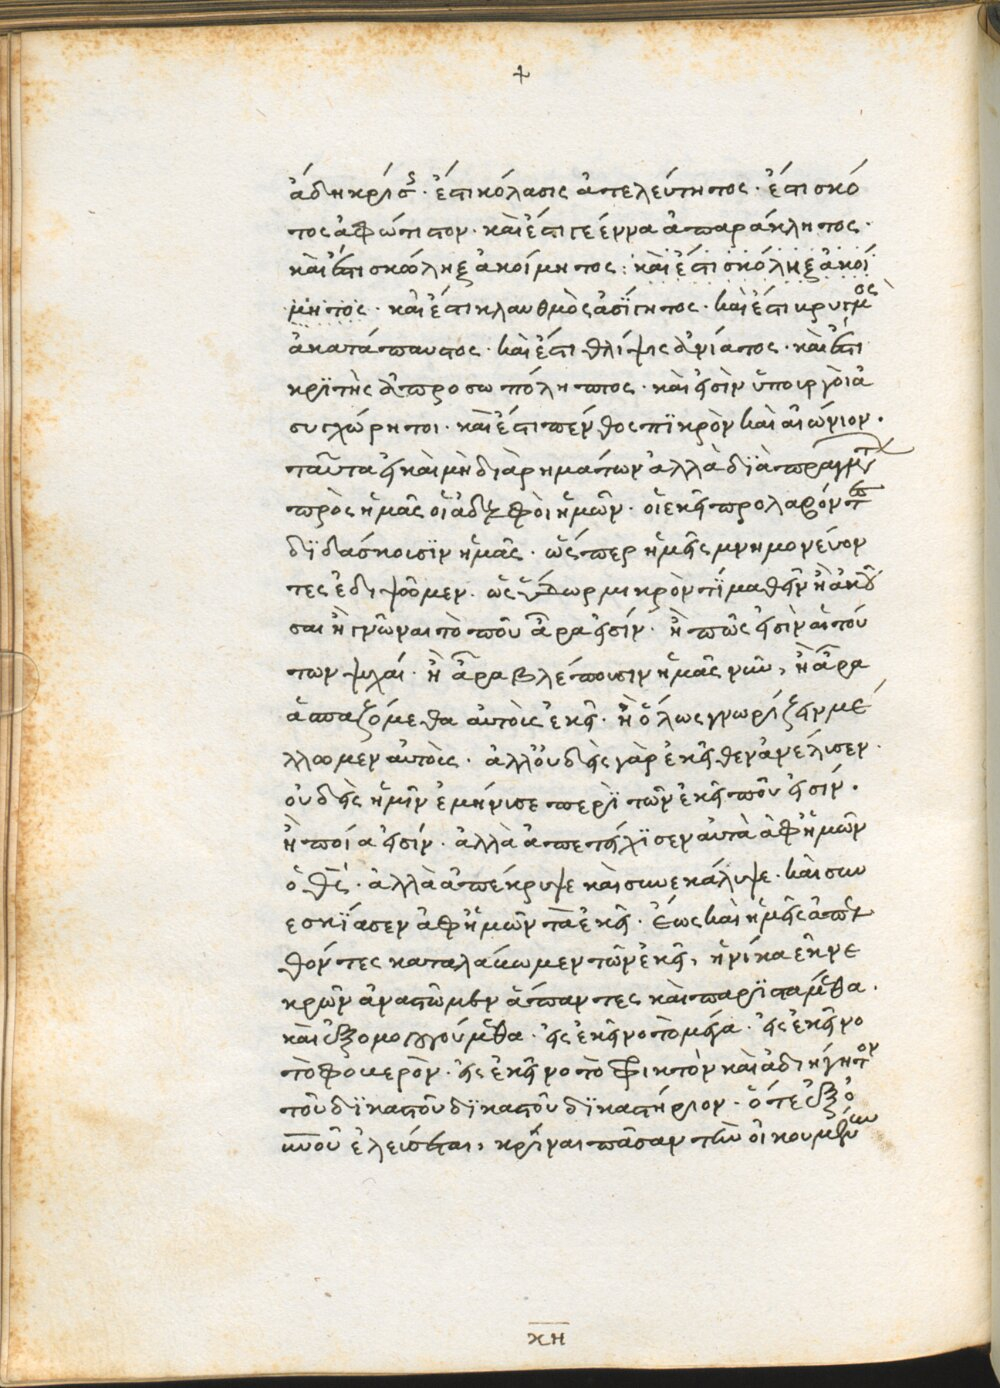 +
ἀδηκρίτως · ἔστι κόλασις ἀτελεύτητος · ἔστι σκό
τος ἀφώτιστον · καὶ ἔστι γεέννα ἀπαράκλητος ·
καὶ ἔστι σκώληξ ἀκοίμητος : καὶ ἔστι σκόληξ ἀκοί
μητος · καὶ ἔστι κλαυθμὸς ἀσίγητος · καὶ ἔστι βρυγμὸς
ἀκατάπαυστος · καὶ ἔστι θλίψις ἀνίατος · καὶ ἔστι
κριτὴς ἀπροσωπόληπτος · καὶ εἰσὶν ὑπουργοὶ ἀ
συγχώρητοι · καὶ ἔστι πένθος πικρὸν καὶ αἰώνιον ·
ταῦτα εἰ καὶ μὴ διὰ ρημάτων ἀλλὰ διὰ πραγμάτων
πρὸς ἡμᾶς οἱ ἀδελφοὶ ἡμῶν · οἱ ἐκεῖ προλαβόντες
διδάσκουσιν ἡμᾶς · ὥσπερ ἡμεῖς μνημονεύον
τες ἐδιψῶμεν · ὡς ὕδωρ μικρὸν τί μαθεῖν ἢ ἀκοῦ
σαι ἢ γνῶναι τὸ ποῦ ἆρα εἰσίν · ἢ πῶς εἰσὶν αἱ τού
των ψυχαί · ἢ ἆρα βλέπουσιν ἡμᾶς νῦν, ἢ ἆρα
ἀσπαζόμεθα αὐτοὺς ἐκεῖ · ἢ ὅλως γνωρίζειν μέ
λλομεν αὐτούς · ἀλλ' οὐδεὶς γὰρ ἐκεῖθεν ἀνέλυσεν ·
οὐδεὶς ἡμῖν ἐμήνυσε περὶ τῶν ἐκεῖ ποῦ εἰσίν ·
ἢ ποία εἰσίν · ἀλλὰ ἀπετείχισεν αὐτὰ ἀφ' ἡμῶν
ὁ θς · ἀλλὰ ἀπέκρυψε καὶ συνεκάλυψε · καὶ συν
εσκίασεν ἀφ' ἡμῶν τὰ ἐκεῖ · ἕως καὶ ἡμεῖς ἀπελ
θόντες καταλάβωμεν τῶν ἐκεῖ, ἡνίκα ἐκ νε
κρῶν ἀναστῶμεν ἅπαντες καὶ παριστάμεθα ·
καὶ ἐξομολογούμεθα · εἰς ἐκεῖνο τὸ μέγα · εἰς ἐκεῖνο
τὸ φοβερὸν · εἰς ἐκεῖνο τὸ φρικτὸν καὶ ἀδιήγητον
τοῦ δικαστοῦ δικαστοῦ δικαστήριον · ὅτε ἐξ ο
υνοῦ ἐλεύσεται, κρῖναι πᾶσαν τὴν οἰκουμένην
κη